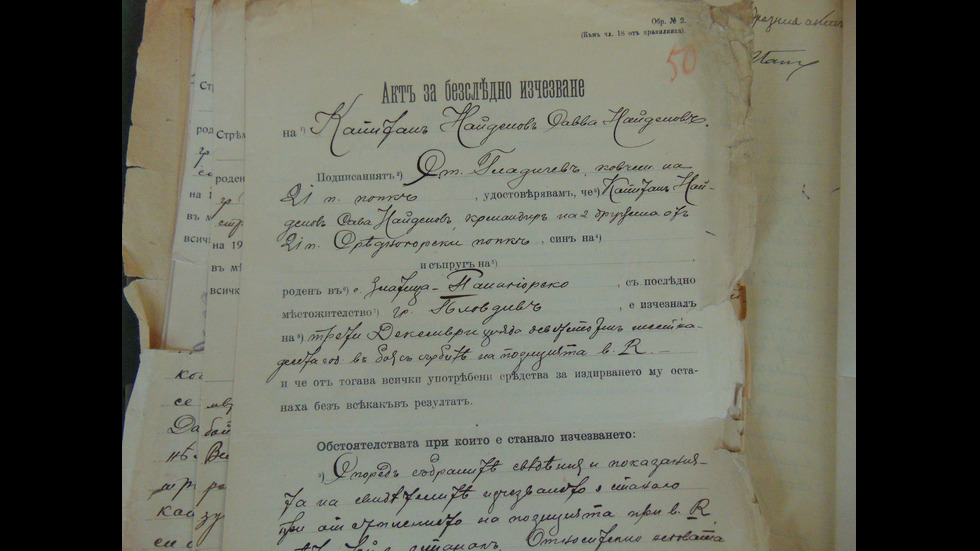 Обр. № 2.
(Къмъ чл. 18 отъ правилника).
50
Актъ за безслѣдно изчезване
на ¹) Капитанъ Найденовъ Савва Найденовъ.
Подписаниятъ ²) Ст. Гладичевъ, ковчеж. на
21 п. полкъ , удостовѣрявам, че ³) Капитанъ Най-
деновъ Сава Найденовъ, командиръ на 2 дружина отъ
21 п. Срѣдногорски полкъ , синъ на ⁴)
и съпругъ на ⁵)
роденъ въ ⁶) с. Златица - Панагюрско , съ последно
мѣстожителство ⁷) гр. Пловдивъ , е изчезналъ
на ⁸) трети Декемврий хиляда деветстотинъ шестна-
десета год. въ боя съ сърбитѣ на позицията в. R.
и че от тогава всички употрѣбени срѣдства за издирването му оста-
наха безъ всѣкакъвъ резултатъ.
Обстоятелствата при които е станало изчезването:
⁹) Споредъ събранитѣ свѣдения и показания-
та на свидѣтелитѣ изчезването е станало
при отстъплението на позицията при в. R.
Относително
Стр
род
на 1
въ м
всич
Стрѣм
роден
на 19
въ мѣ
всичк
ког
се
Да
бой
Вс
ре
зу
кай
си